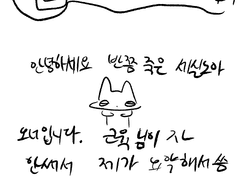 안녕하세요 반쯤 죽은 세실노아
오너입니다. 근육님이 자
안써서 제가 요약해서 씀